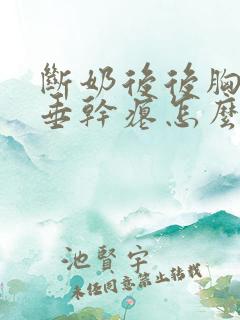 斷奶後後胸
垂幹瘪怎麼
池賢宇
未任同意禁止轉載